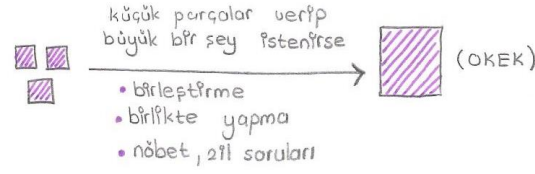 küçük parçalar verip
büyük bir şey istenirse
(OKEK)
• birleştirme
• birlikte yapma
• nöbet, zil soruları